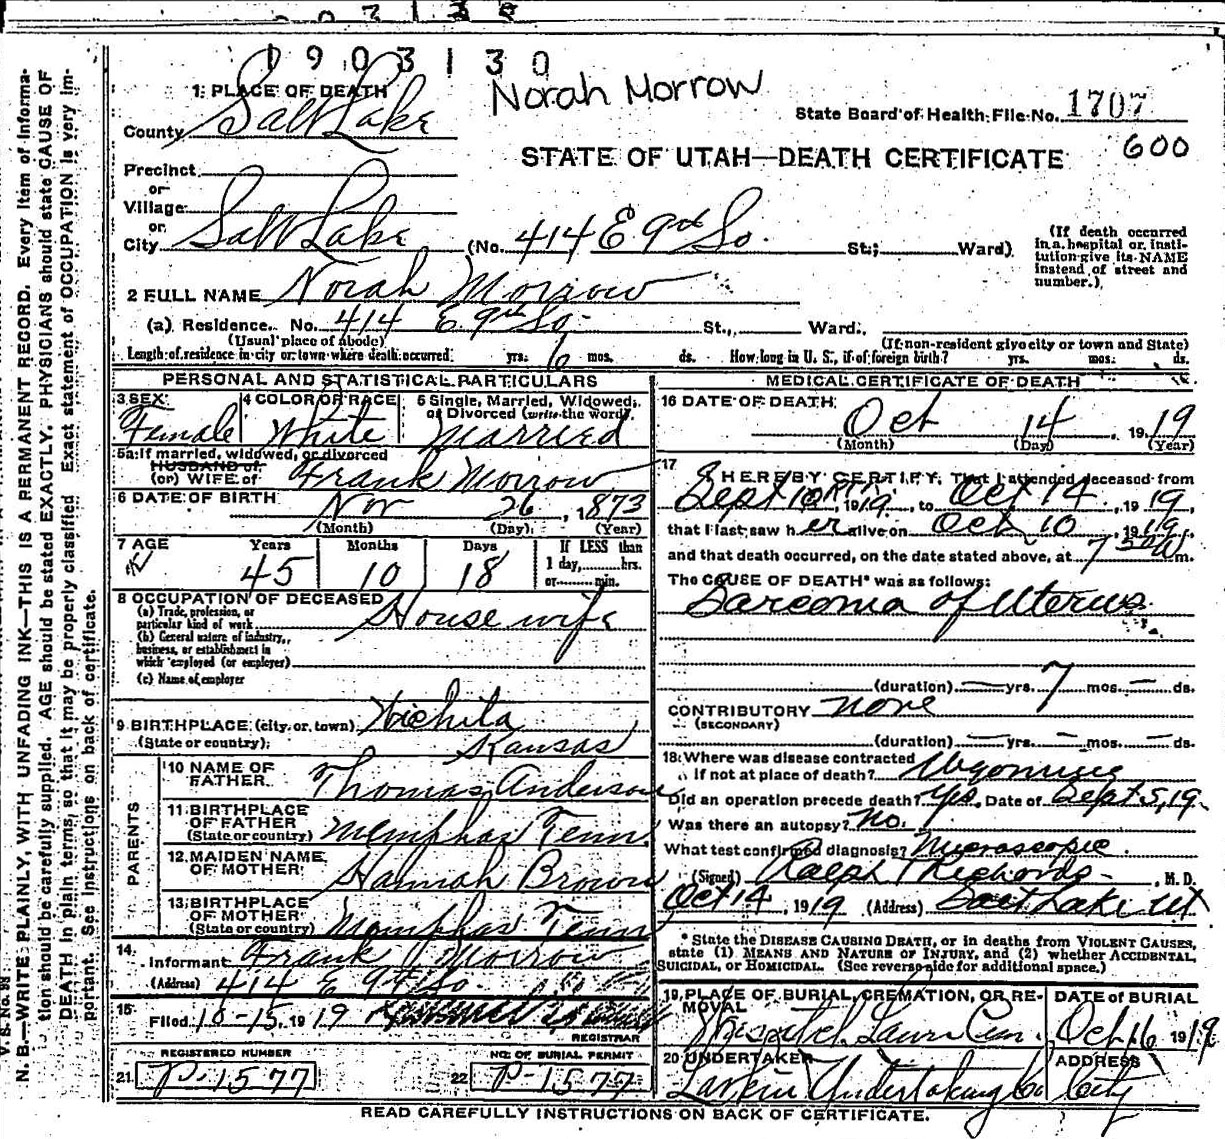 1903130
Norah Morrow
1: PLACE OF DEATH
State Board of Health File No. 1707
County Salt Lake
600
STATE OF UTAH—DEATH CERTIFICATE
Precinct
or
Village
or
City Salt Lake (No. 414 E 9th So. St.; Ward)
(If death occurred in a hospital or institution give its NAME instead of street and number.)
2 FULL NAME Norah Morrow
(a) Residence. No. 414 E. 9th So. St., Ward.
(Usual place of abode) (If non-resident give city or town and State)
Length of residence in city or town where death occurred: yrs. 6 mos. ds. How long in U. S., if of foreign birth? yrs. mos. ds.
PERSONAL AND STATISTICAL PARTICULARS
3 SEX: Female
4 COLOR OR RACE White
5 Single, Married, Widowed, or Divorced (write the word) Married
5a If married, widowed, or divorced
HUSBAND of
(or) WIFE of Frank Morrow
6 DATE OF BIRTH Nov 26, 1873
(Month) (Day) (Year)
7 AGE Years Months Days If LESS than
1 day, hrs.
or min.
45 10 18
8 OCCUPATION OF DECEASED
(a) Trade, profession, or particular kind of work House wife
(b) General nature of industry, business, or establishment in which employed (or employer)
(c) Name of employer
9 BIRTHPLACE (city or town) Wichita
(State or country) Kansas
PARENTS
10 NAME OF FATHER Thomas Anderson
11 BIRTHPLACE OF FATHER (State or country) Memphas Tenn.
12 MAIDEN NAME OF MOTHER Hannah Brown
13 BIRTHPLACE OF MOTHER (State or country) Memphas Tenn
14 Informant Frank Morrow
(Address) 414 E 9th So.
15 Filed 10-15, 1919
REGISTRAR
REGISTERED NUMBER
21 P-1577
NO. OF BURIAL PERMIT
22 P-1577
MEDICAL CERTIFICATE OF DEATH
16 DATE OF DEATH Oct 14, 1919
(Month) (Day) (Year)
17 I HEREBY CERTIFY, That I attended deceased from
Sept 10th, 1919, to Oct 14, 1919,
that I last saw her alive on Oct 10, 1919,
and that death occurred, on the date stated above, at 7 30 a m.
The CAUSE OF DEATH* was as follows:
Sarcoma of Uterus.
(duration) — yrs. 7 mos. — ds.
CONTRIBUTORY none
(SECONDARY)
(duration) — yrs. — mos. — ds.
18 Where was disease contracted
If not at place of death? Wyoming
Did an operation precede death? Yes. Date of Sept 5, 19.
Was there an autopsy? No.
What test confirmed diagnosis? Microscopic.
(Signed) Ralph T Richards, M. D.
Oct 14, 1919 (Address) Salt Lake Ut
* State the DISEASE CAUSING DEATH, or in deaths from VIOLENT CAUSES,
state (1) MEANS AND NATURE OF INJURY, and (2) whether ACCIDENTAL,
SUICIDAL, or HOMICIDAL. (See reverse side for additional space.)
19 PLACE OF BURIAL, CREMATION, OR REMOVAL Lawn Cem.
DATE of BURIAL Oct 16 1919
20 UNDERTAKER Larkin Undertaking Co
ADDRESS City
READ CAREFULLY INSTRUCTIONS ON BACK OF CERTIFICATE.
V. S. No. 98
N. B.—WRITE PLAINLY, WITH UNFADING INK—THIS IS A PERMANENT RECORD. Every item of informa-
tion should be carefully supplied. AGE should be stated EXACTLY. PHYSICIANS should state CAUSE OF
DEATH in plain terms, so that it may be properly classified. Exact statement of OCCUPATION is very im-
portant. See instructions on back of certificate.